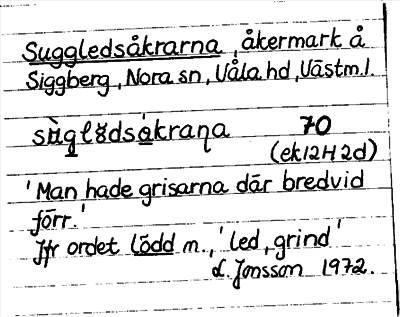 Suggledsåkrarna, åkermark å
Siggberg, Nora sn, Våla hd, Västm.l.
sùglŏdsåkraṇa 70
(ek12H2d)
'Man hade grisarna där bredvid
förr.'
Jfr ordet lödd m., 'led, grind'
L. Jonsson 1972.